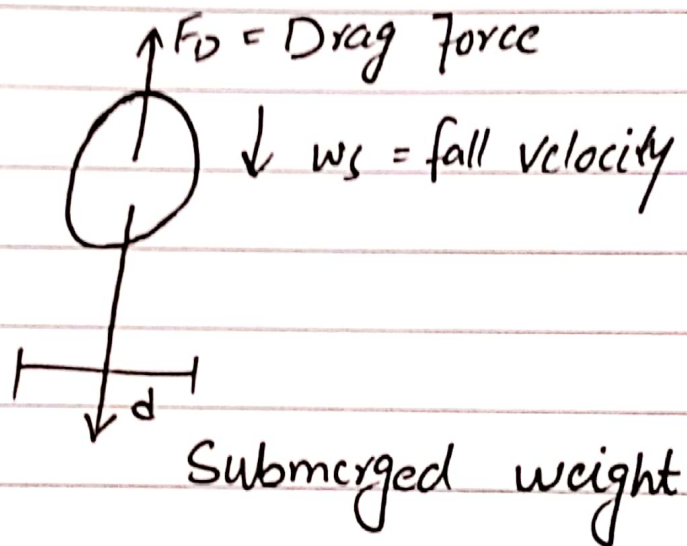 F_D = Drag Force
w_s = fall velocity
d
Submerged weight